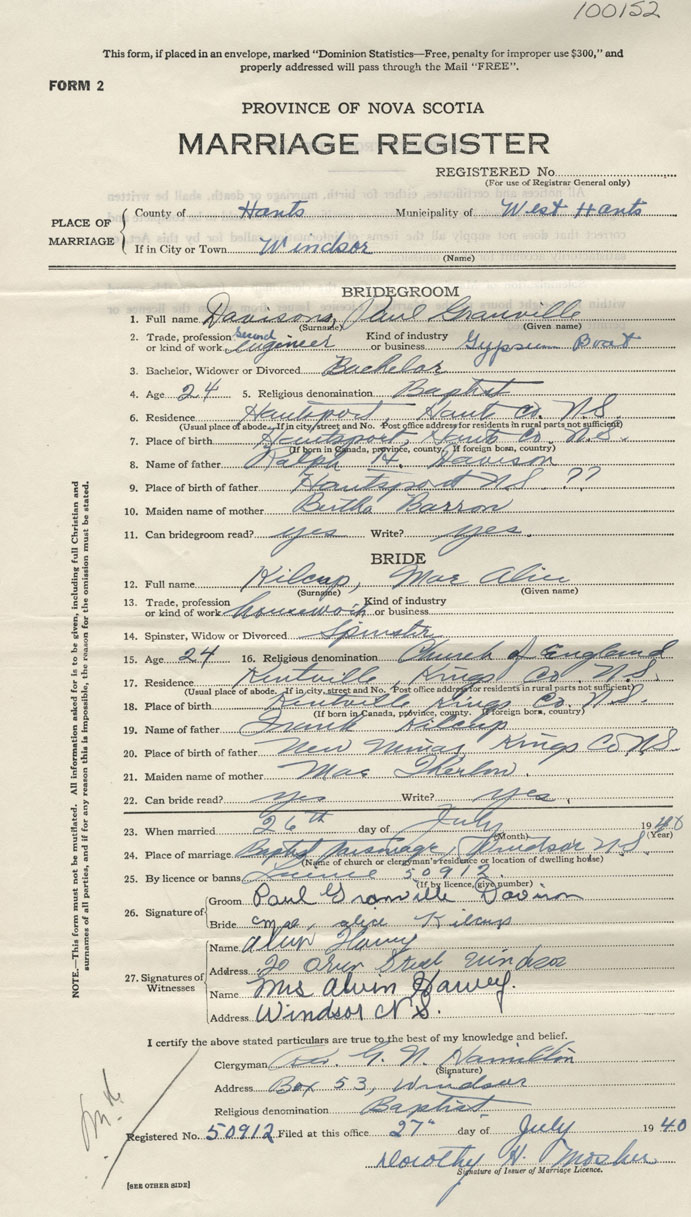 100152
This form, if placed in an envelope, marked "Dominion Statistics—Free, penalty for improper use $300," and
properly addressed will pass through the Mail "FREE".
FORM 2
PROVINCE OF NOVA SCOTIA
MARRIAGE REGISTER
REGISTERED No.
(For use of Registrar General only)
PLACE OF MARRIAGE
County of Hants Municipality of West Hants
If in City or Town Windsor
(Name)
BRIDEGROOM
1. Full name Davisons, Paul Granville
(Surname) (Given name)
2. Trade, profession or kind of work second engineer Kind of industry or business Gypsum Boat
3. Bachelor, Widower or Divorced Bachelor
4. Age 24 5. Religious denomination Baptist
6. Residence Hantsport, Hants Co. N.S.
(Usual place of abode. If in city, street and No. Post office address for residents in rural parts not sufficient)
7. Place of birth Hantsport, Hants Co. N.S.
(If born in Canada, province, county. If foreign born, country)
8. Name of father Ralph H. Davison
9. Place of birth of father Hantsport N.S. ??
10. Maiden name of mother Bertha Barron
11. Can bridegroom read? yes Write? yes.
BRIDE
12. Full name Kilcup, Mae Alice
(Surname) (Given name)
13. Trade, profession or kind of work housework Kind of industry or business
14. Spinster, Widow or Divorced Spinster
15. Age 24 16. Religious denomination Church of England
17. Residence Kentville, Kings Co. N.S.
(Usual place of abode. If in city, street and No. Post office address for residents in rural parts not sufficient)
18. Place of birth Kentville Kings Co. N.S.
(If born in Canada, province, county. If foreign born, country)
19. Name of father Frank Kilcup
20. Place of birth of father New Minas, Kings Co N.S.
21. Maiden name of mother Mae
22. Can bride read? yes Write? yes,
23. When married 26th day of July 1940
(Month) (Year)
24. Place of marriage Baptist Parsonage, Windsor N.S.
(Name of church or clergyman's residence or location of dwelling house)
25. By licence or banns Licence 50912
(If by licence, give number)
26. Signature of
Groom Paul Granville Davison
Bride Mae, alice Kilcup
27. Signatures of Witnesses
Name Alvin Harvey
Address 20 Street Windsor
Name Mrs Alvin Harvey.
Address Windsor N.S.
I certify the above stated particulars are true to the best of my knowledge and belief.
Clergyman Rev. G. N. Hamilton
(Signature)
Address Box 53, Windsor
Religious denomination Baptist
Registered No. 50912 Filed at this office 27" day of July 1940
Dorothy H. Mosher
Signature of Issuer of Marriage Licence.
[SEE OTHER SIDE]
NOTE.—This form must not be mutilated. All information asked for is to be given, including full Christian and
surnames of all parties, and if for any reason this is impossible, the reason for the omission must be stated.